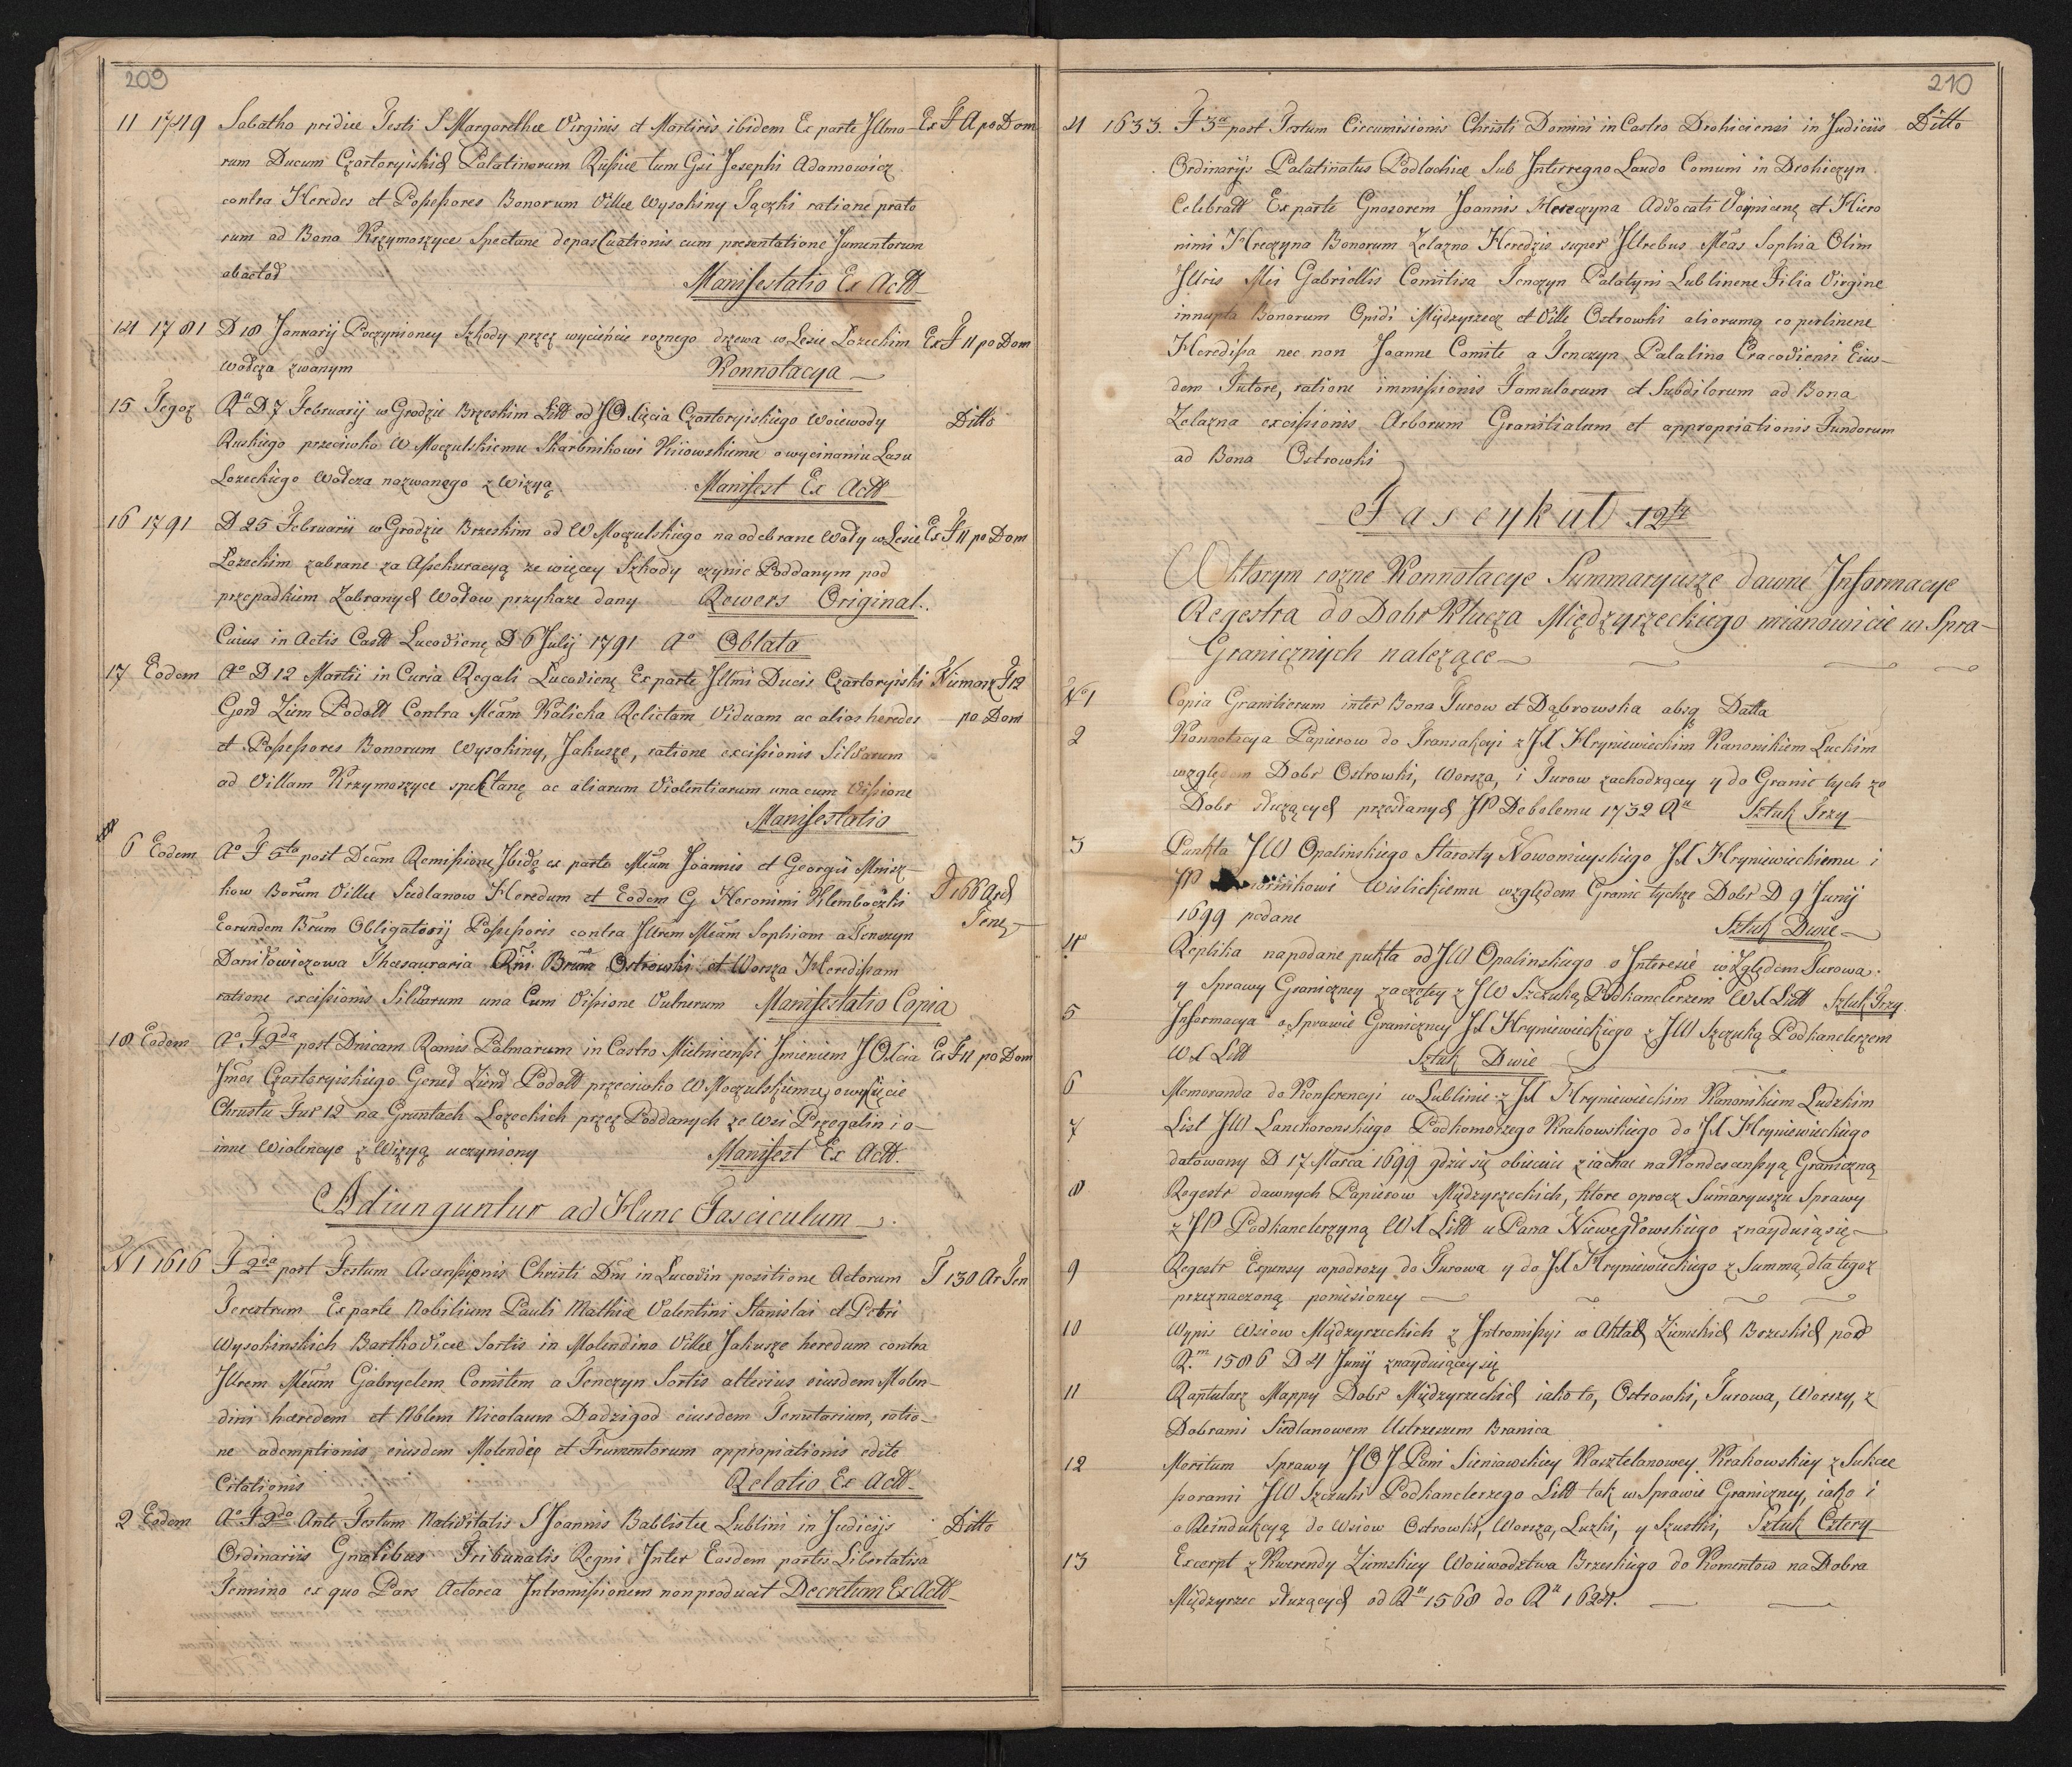 209
11 1749 Sabatho pridie Festi S Margarethæ Virginis et Martiris ibidem Ex parte Illmo- Ex F A po Dom
rum Ducum Czartoryiskich Palatinorum Russiæ tum Gsi Josephi Adamowicz
contra Heredes et Possessores Bonorum Villæ Wysokiny Jączki ratione prato
rum ad Bona Krzymoszyce Spectane depascuationis cum presentatione Jumentorum
abactod Manifestatio Ex Actt
14 1781 D 18 Januarij Poczynioney Szkody przez wycieńcie roznego drzewa w Lesie Łozeckim Ex F 11 po Dom
Wołcza zwanym Konnotacya
15 Tegoz Ru D 7 Februarij w Grodzie Brzeskim Litt od JO Xięcia Czartoryiskiego Woiewody Ditto
Ruskiego przeciwko W Moczulskiemu Skarbnikowi Kiiowskiemu o wycinaniu Lasu
Łozeckiego Wołcza nazwanego z Wizyą Manifest Ex Actt
16 1791 D 25 Februarii w Grodzie Brzeskim od W Moczulskiego na odebrane Woły w Lesie Ex F 11 po Dom
Łozeckim zabrane za Assekuracyą ze więcey Szkody czynic Poddanym pod
przepadkiem Zabranych Wołow przykaze dany Rewers Original.
Cuius in Actis Castt Lucovienę D 6 Julij 1791 Ao Oblata
17 Eodem Ao D 12 Martii in Curia Regali Lucovienę Ex parte Illmi Ducis Czartoryiski Niemasz F 12
Gend Ziem Podott Contra Meām Kalicka Relictam Viduam ac alios heredes po Dom
et Possessores Bonorum Wysokiny, Jakusze, ratione excissionis Silvarum
ad Villam Krzymoszyce spektanę ac aliarum Violentiarum una cum Vissione
Manifestatio
6 Eodem Ao F 5ta post Dcām Remissione Ibidę ex parte Meum Joannis et Georgii Mnisz-
kow Borūm Villæ Siedlanow Heredum et Eodem G Heronimi Klembocki F 166 Arch
Earundem Brum Obligatorij Possessoris contra Jllrem Meām Sophiam a Tenczyn Tenę
Daniłowiczowa Thæsauraria Rni Brum Ostrowki et Worsza Heredissam
ratione excissionis Silvarum una Cum Vissione Vulnerum Manifestatio Copia
18 Eodem Ao F 2da post Dnicam Ramis Palmarum in Castro Mielnicensi Imieniem JO Xcia Ex F 11 po Dom
Imci Czartoryiskiego Generd Ziemd Podott przeciwko W Moczulskiemu o wysiecie
Chrustu Fur 12 na Gruntach Łozeckich przez Poddanych ze Wsi Przegalin i o
inne Wiolencye z Wizyą uczyniony Manifest Ex Actt.
Adiunguntur ad Hunc Fasciculum
N 1 1616 F 2da post Festum Ascenssionis Christi Dni in Lucovin positione Actorum F 130 Ar Ten
Terestrum Ex parte Nobilium Pauli Mathiæ Valentini Stanislai et Petri
Wysokinskich Bartkoviæ Sortis in Molendino Villæ Jakusze heredum contra
Jllrem Meūm Gabryelem Comitem a Tenczyn Sortis alterius eiusdem Molen-
dini hæredem et Nblem Nicolaum Dadzigod eiusdem Tenutarium, ratio-
ne ademptionis eiusdem Molendię et Frumentorum appropiationis edite
Citationis Relatio Ex Actt
2 Eodem Ao F 2da Ante Festum Nativitatis S Joannis Bablistæ Lublini in Judicijs Ditto
Ordinariis Gnalibus Tribunalis Regni Inter Easdem partis Libertatisa
Termino ex quo Pars Actorea Intromissionem non producit Decretum Ex Actt
210
4 1633. F 3a post Festum Circumisionis Christi Domini in Castro Drohiciensi in Judiciis Ditto
Ordinarijs Palatinatus Podlachiæ Sub Interregno Laudo Comuni in Drohiczyn
Celebratt Ex parte Gnosorem Joannis Hreczyna Advocati Voynicenę et Hiero
nimi Hreczyna Bonorum Zelazna Heredzis super Jllrebus Meās Sophia Olim
Jllris Mei Gabriellis Comitisa Tenczyn Palatyni Lublinene Filia Virgine
innupta Bonorum Opidi Międzyrzecz et Ville Ostrowki aliorumq eo pertinene
Heredissa nec non Joanne Comite a Tenczyn Palatino Cracoviensi Eius-
dem Tutore, ratione immissionis Famulorum et Subditorum ad Bona
Zelazna excissionis Arborum Granitialum et appropriationis Fundorum
ad Bona Ostrowki
Fascykuł 12ty
W ktorym rozne Konnotacye Summaryusze dawne Informacye
Regestra do Dobr Klucza Międzyrzeckiego mianowicie w Spra-
Granicznych nalezące
No 1 Copia Granitierum inter Bona Turow et Dąbrowska absq Datta
2 Konnotacya Papierow do Transakcyi z JX Hryniewieckim Kanonikiem Łuckim
względem Dobr Ostrowki, Worsza, i Turow zachodzącey y do Granic tych ze
Dobr słuzących przesłanych JP Debolemu 1732 Ru Sztuk Trzy
3 Punkta JW Opalinskiego Starosty Nowomieyskiego JX Hryniewieckiemu i
JP Wislickiemu względem Granic tychze Dobr D 9 Junij
1699 podane Sztuk Dwie
4 Replika na podane pukta od JW Opalinskiego o Interesie względem Turowa
y Sprawy Graniczney zaczętey z JW Szczuką Podkanclerzem WX Litt Sztuk Trzy
5 Informacya o Sprawie Graniczney JX Hryniewieckiego z JW Szczuką Podkanclerzem
WX Litt Sztuk Dwie
6 Memoranda do Konferencyi w Lublinie z JX Hryniewieckim Kanonikiem Ludzkim
7 List JW Lanckoronskiego Podkomorzego Krakowskiego do JX Hryniewieckiego
datowany D 17 Marca 1699 gdzie się obiecuie ziachac na Kondescenssyą Graniczną
8 Regestr dawnych Papierow Międzyrzeckich, ktore oprocz Sumaryuszu Sprawy
z JP Podkanclerzyną WX Litt u Pana Niewęgłowskiego znayduią się
9 Regestr Expensy w podrozy do Turowa y do JX Hryniewieckiego z Summą dla tegoz
przeznaczoną poniesioney
10 Wypis Wsiow Międzyrzeckich z Intromissyi w Aktach Ziemskich Brzeskich pod
R.m 1586 D 4 Junij znayduiącey się
11 Raptularz Mappy Dobr Międzyrzeckich iako to, Ostrowki, Turowa, Worszy, z
Dobrami Siedlanowem Ustrzeszem Branica
12 Meritum Sprawy JOJ Pani Sieniawskiey Kasztelanowey Krakowskiey z Sukce
ssorami JW Szczuki Podkanclerzego Litt tak w Sprawie Graniczney, iako i
o Reindukcyą do Wsiow Ostrowki, Worsza, Luzki, y Szustki, Sztuk Cztery
13 Excerpt z Kwerendy Ziemskiey Woiewodztwa Brzeskiego do Komentow na Dobra
Międzyrzec słuzących od Ru 1568 do Ru 1624.